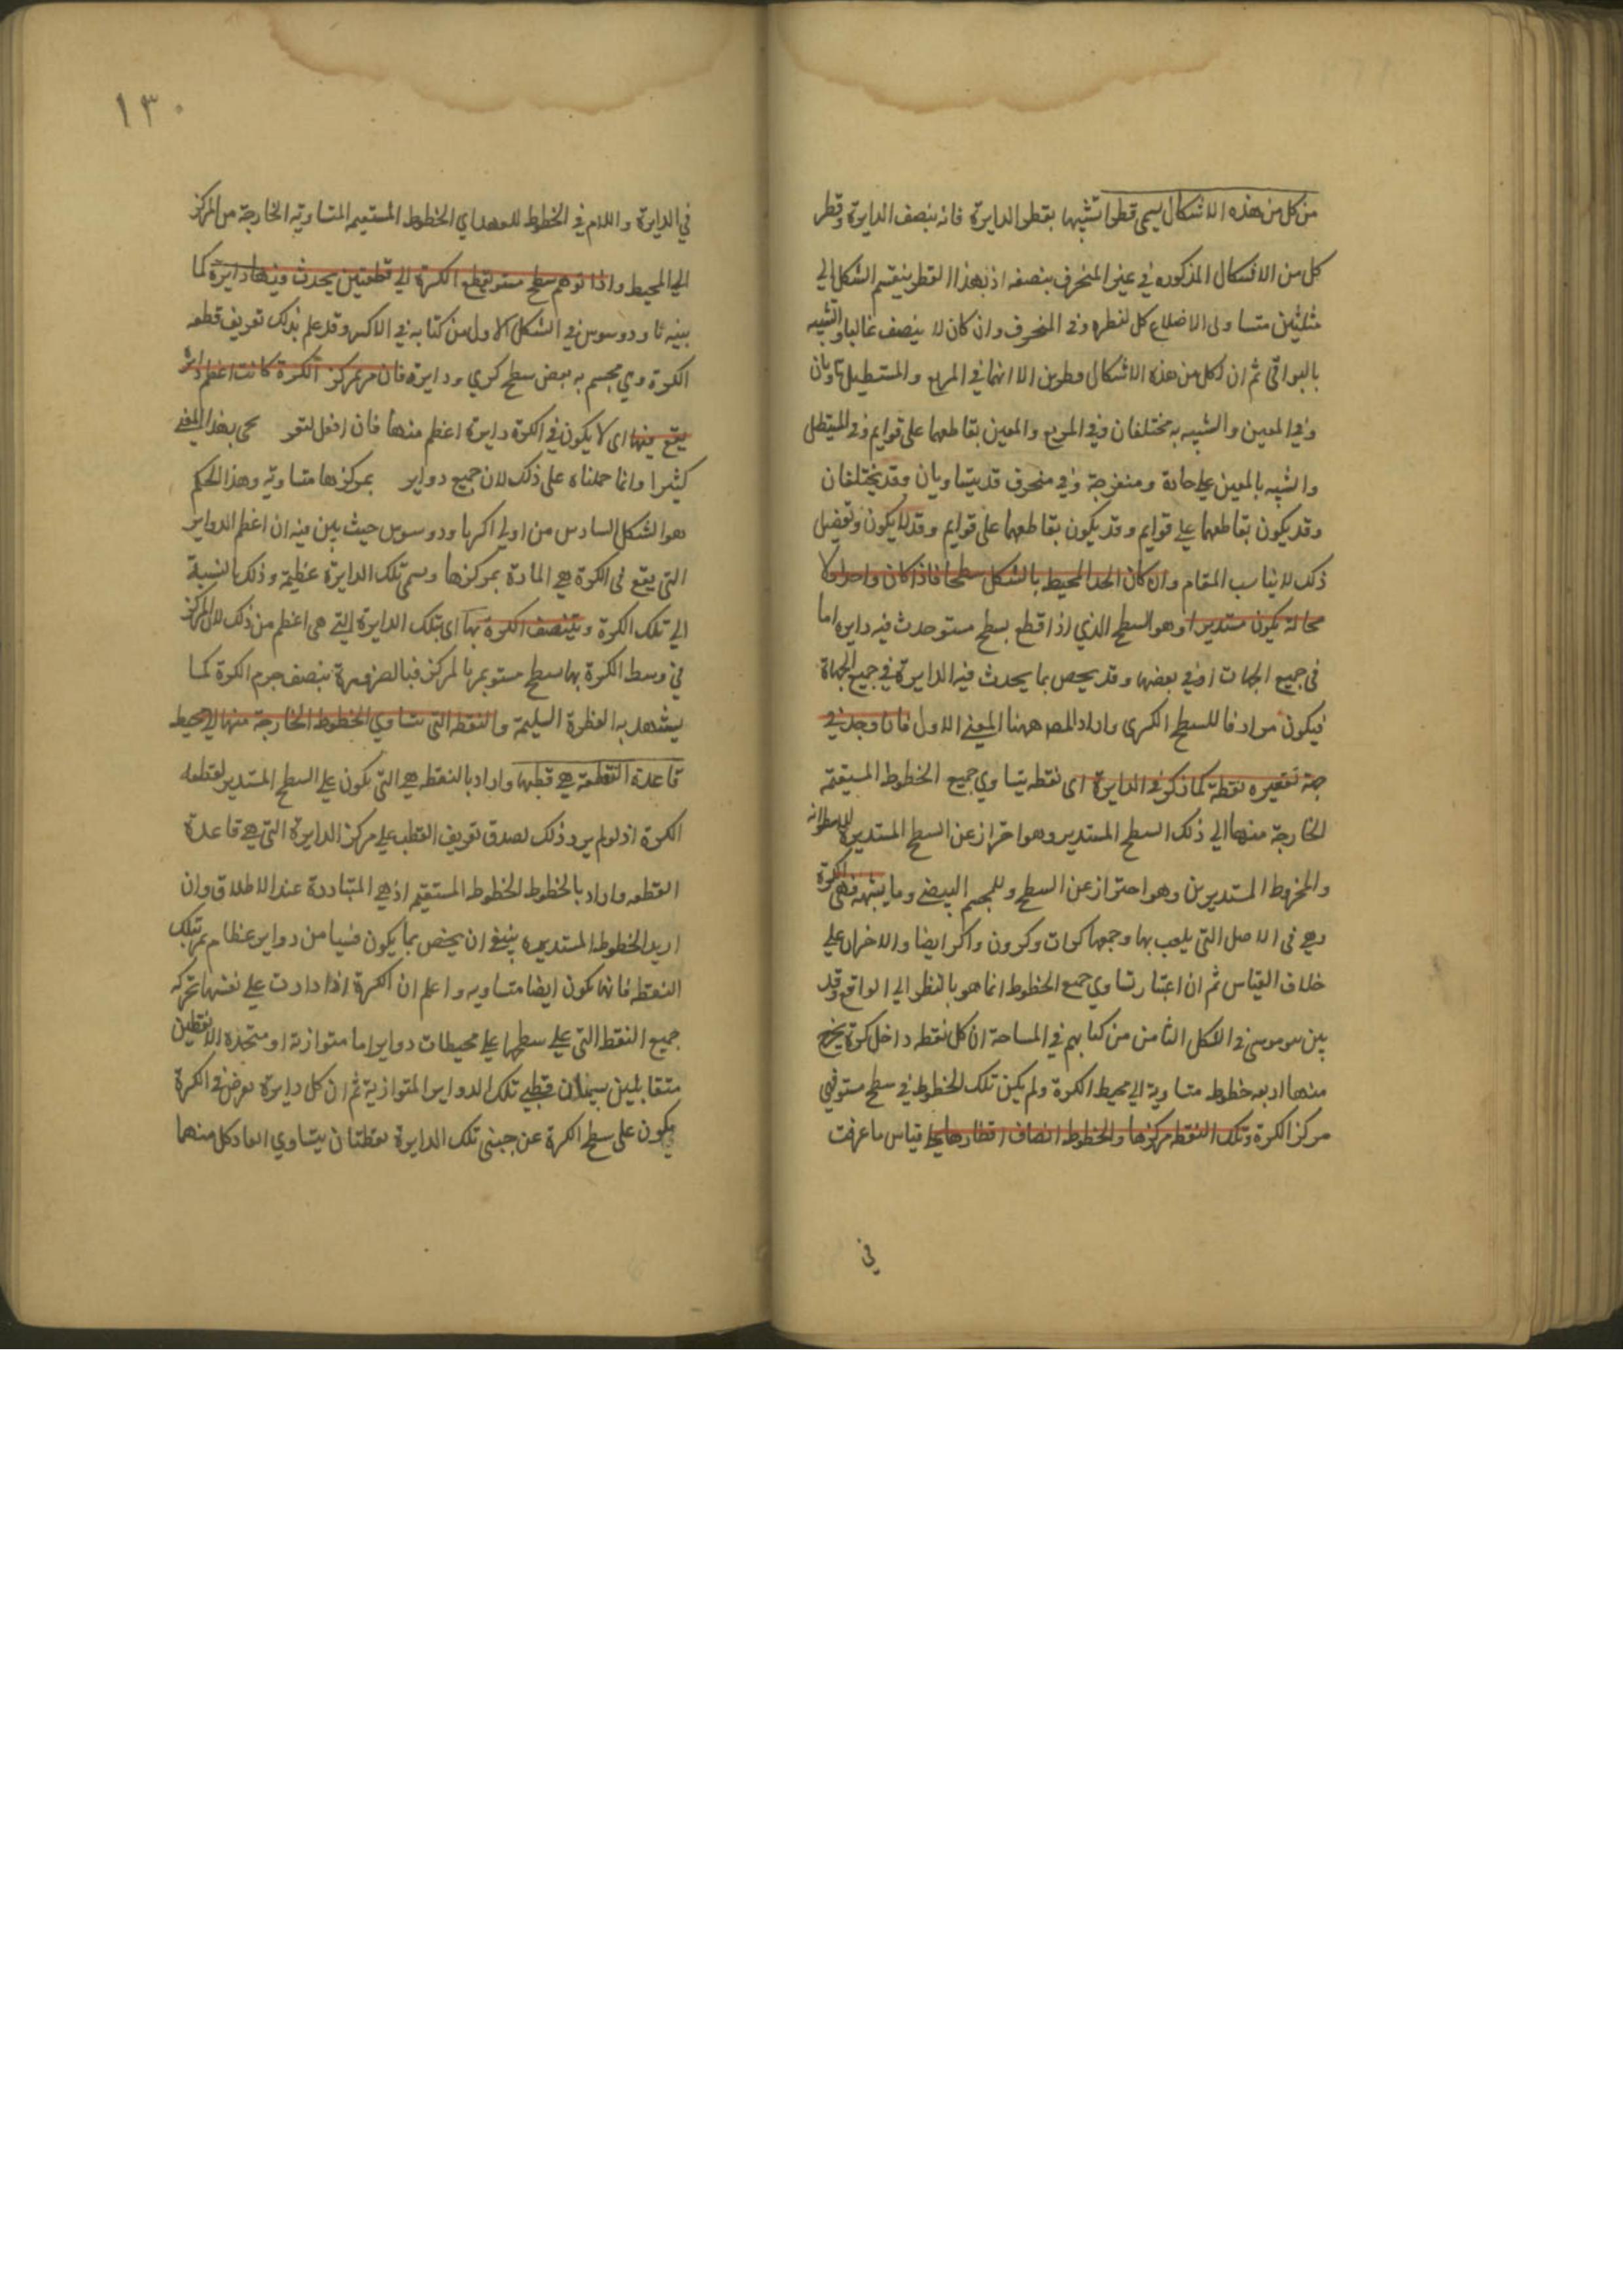 من كل من هذه الاشكال يسمى قطرا تشبيها بقطر الدايرة فانه ينصف الدايرة وقطر
كل من الاشكال المذكوره في غير المنحرف ينصفه اذ بهذا القطر ينقسم الشكل الى
مثلثين متساوى الاضلاع كل لنظره وفى المنحرف وان كان لا ينصف غالبا والشبيه
بالبواقى ثم ان لكل من هذه الاشكال قطرين الا انهما في المربع والمستطيل متساويان
وفي المعين والشبيه به مختلفان وفي المربع والمعين تقاطعهما على قوايم وفى المستطيل
والشبيه بالمعين على حادة ومنفرجة وفي منحرف قد يتساويان وقد يختلفان
وقد يكون تقاطعهما على قوايم وقد يكون تقاطعهما على قوايم وقد لا يكون وتفصيل
ذلك لا يناسب المقام وان كان الحد المحيط بالشكل سطحا فاذا كان واحدا ولا
محالة يكون مستديرا وهو السطح الذي اذا قطع بسطح مستو حدث فيه دايره اما
فى جميع الجهات او في بعضها وقد يخص بما يحدث فيه الدايرة في جميع الجهاة
فيكون مرادفا للسطح الكرى واراد المص ههنا المعنى الاول فاذا وجد في
جهة تقعيره نقطة كما ذكر في الدايرة اى نقطه يتساوي جميع الخطوط المستقيمة
الخارجة منها الى ذلك السطح المستدير وهو احتراز عن السطح المستديرة للاسطوانه
والمخروط المستديرين وهو احتراز عن السطح وللمجسم البيضى وما يشبهه فهى الكرة
وهى فى الاصل التى يلعب بها وجمعها كرات وكرون واكر ايضا والاخران على
خلاف القياس ثم ان اعتبار تساوي جميع الخطوط انما هو بالنظر الى الواقع وقد
بين بنو موسى فى الشكل الثامن من كتابهم في المساحة ان كل نقطه داخل كرة يخرج
منها اربعه خطوط متساوية الى محيط الكرة ولم يكن تلك الخطوط في سطح مستو فهي
مركز الكرة وتلك النقطه مركزها والخطوط انصاف اقطارها على قياس ما عرفت
في
١٣٠
في الدايرة واللام في الخطوط للعهد اي الخطوط المستقيمه المتساويه الخارجة من المركز
الى المحيط واذا توهم سطح مستو يقطع الكرة الى قطعتين يحدث فيها دايرة كما
بينه ثاودوسوس في الشكل الاول من كتابه في الاكر وقد علم بذلك تعريف قطعه
الكرة وهي مجسم به بعض سطح كري ودايرة فان مر بمركز الكرة كانت اعظم دايرة
يقع فيها اى لا يكون في الكرة دايرة اعظم منها فان افعل التفـ يجى بهذا المعنى
كثيرا وانما حملناه على ذلك لان جميع دواير بمركزها متساويه وهذا الحكم
هو الشكل السادس من اولى اكر ثاودوسوس حيث بين فيه ان اعظم الدواير
التى يقع فى الكرة هى المارة بمركزها ويسمى تلك الدايرة عظيمة وذلك بالنسبة
الى تلك الكرة وينتصف الكرة بها اى بتلك الدايرة التى هى اعظم من ذلك لان المركز
في وسط الكرة بها سطح مستو يمر بالمركز فبالضرورة ينصف جرم الكرة كما
يشهد به الفطرة السليمة والنقطه التى تتساوي الخطوط الخارجة منها الى محيط
قاعدة القطعة هى قطبها واراد بالنقطه هى التى يكون على السطح المستدير لقطعه
الكرة اذ لو لم يرد ذلك لصدق تعريف القطب على مركز الدايرة التى هى قاعدة
القطعه واراد بالخطوط الخطوط المستقيمه اذ هي المتبادرة عند الاطلاق وان
اريد الخطوط المستديره ينبغى ان يخص بما يكون قسيا من دواير عظام تمر بتلك
النقطه فانها تكون ايضا متساويه واعلم ان الكرة اذا دارت على نفسها تحركه
جميع النقط التى على سطحها على محيطات دواير اما متوازية او متحدة الا نقطتين
متقابلتين يسميان قطبى تلك الدواير المتوازية ثم ان كل دايرة تعرض في الكرة
يكون على سطح الكرة عن جنبى تلك الدايرة نقطتان يتساوي ابعاد كل منهما